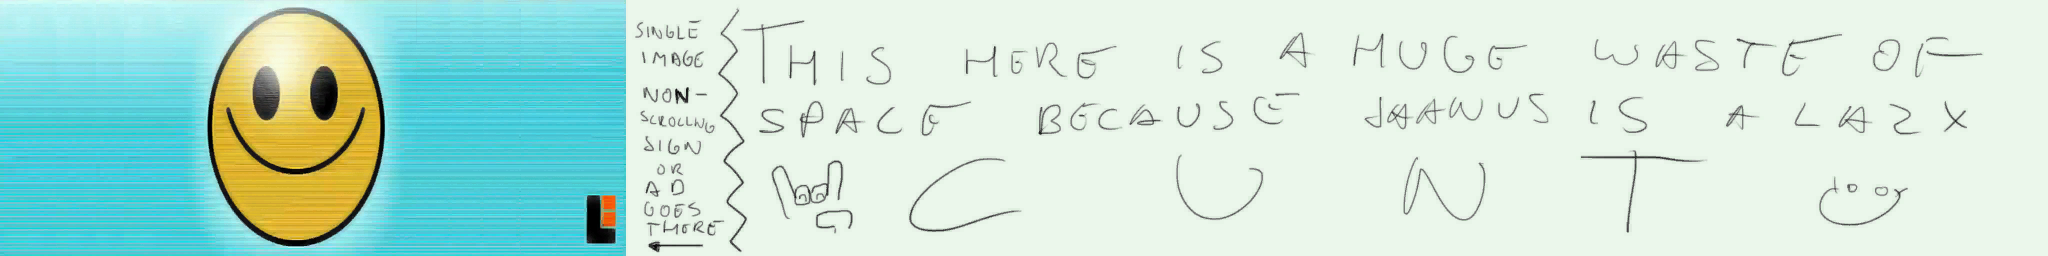 SINGLE
IMAGE
NON-
SCROLLNG
SIGN
OR
AD
GOES
THERE
THIS HERE IS A HUGE WASTE OF
SPACE BECAUSE JAANUS IS A LAZY
CUNT